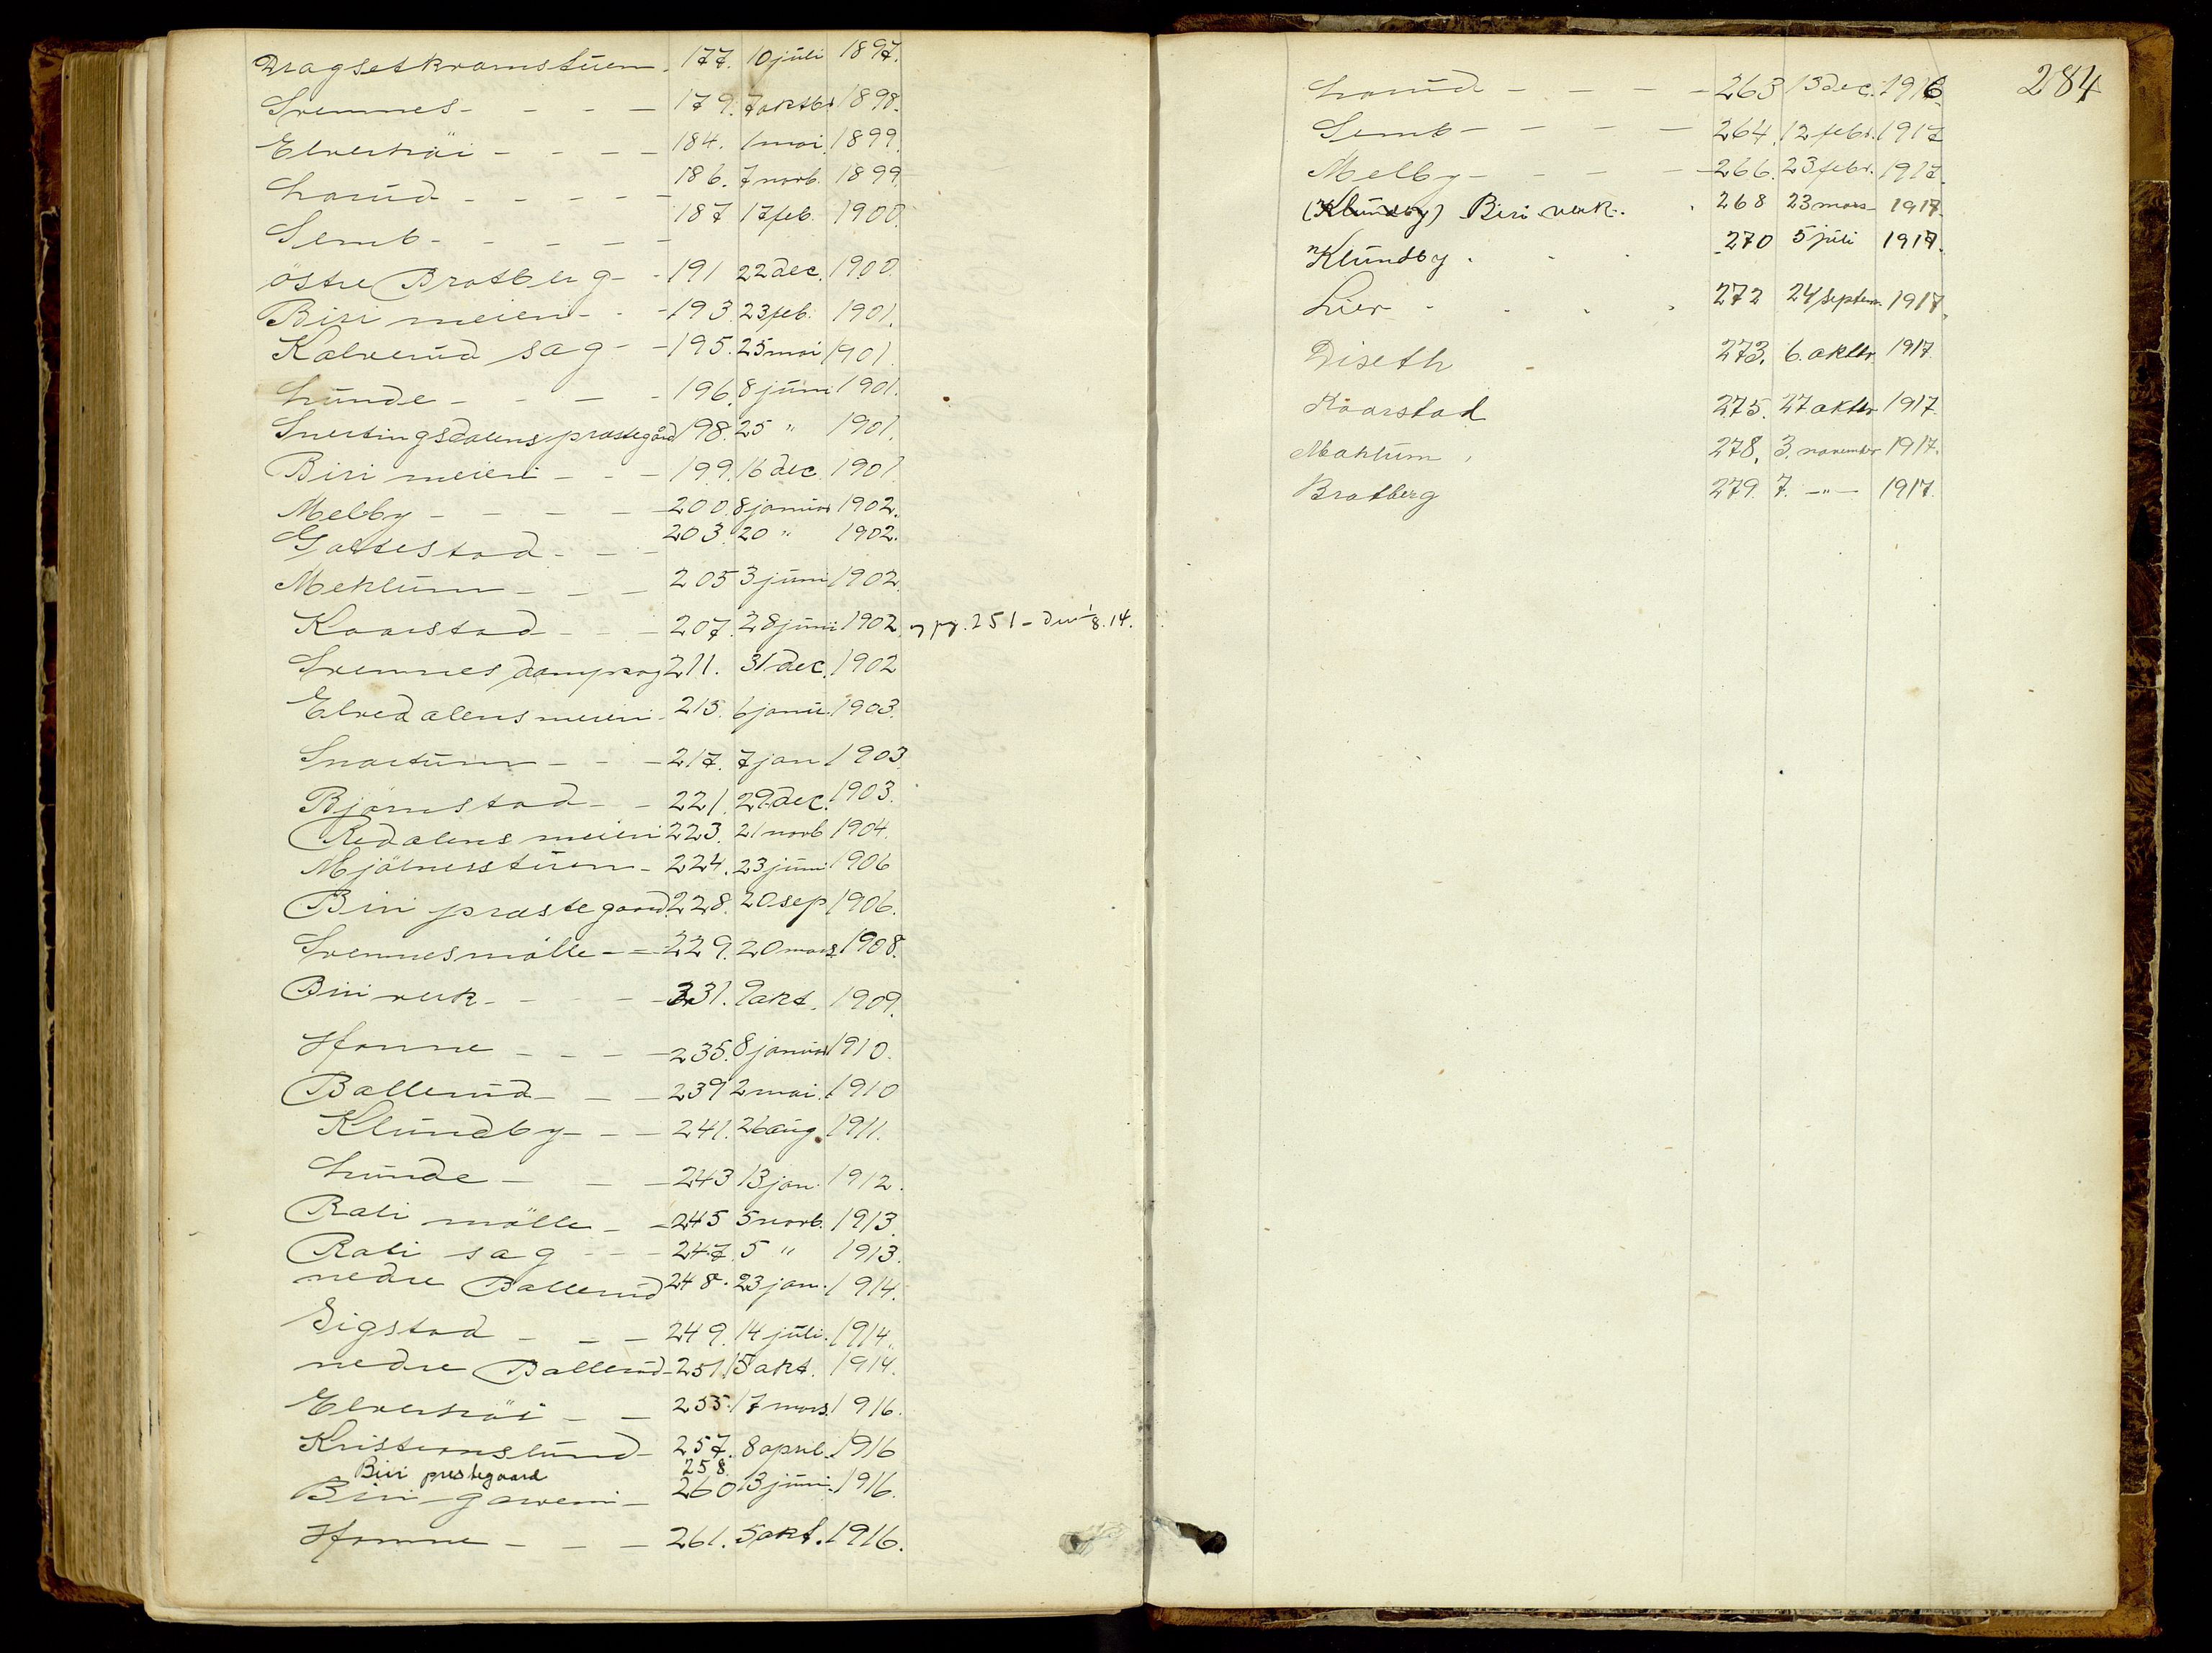 Dragsetkramstuen. 177. 10 juli 1897.
Svennes - - - - 179. 7 oktbr 1898.
Elverhöi - - - - 184. 1 mai 1899.
Laurud - - - - - 186. 7 novb. 1899.
Semb - - - - - 187 17 feb. 1900.
östre Bratberg - - 191 22 dec. 1900.
Biri meieri - - - 193. 23 feb. 1901.
Kalverud sag - - 195. 25 mai 1901
Lunde - - - - 196. 8 juni 1901.
Snertingsdalens prastegård 198. 25 " 1901.
Biri meieri - - - 199. 16 dec. 1901
Melby - - - - - 200. 8 januar 1902.
Galtestad - - - 203. 20 " 1902.
Mehlum - - - 205 3 juni 1902.
Kaarstad - - - 207. 28 juni 1902, og pg. 251 - 1/8. 14.
Svennes dampsag 211. 31 dec. 1902
Elvedalens meieri - 215. 6 janu. 1903.
Snartum - - - 217. 7 jan 1903.
Björnstad - - 221. 29 dec. 1903.
Redalens meieri 223. 21 novb 1904.
Mjölnerstuen - 224. 23 juni 1906
Biri prastegaard 228. 20 sep 1906.
Svennes mölle - - 229. 20 mars 1908.
Biri verk - - - - 231. 9 okt. 1909.
Honne - - - - 235. 8 januar 1910.
Ballerud - - - 239 2 mai. 1910
Klundby - - - 241. 26 aug. 1911.
Lunde - - - 243 13 jan. 1912.
Rali mölle - - 245 5 novb. 1913.
Rali sag - - - 247. 5 " 1913.
nedre Ballerud 248. 23 jan. 1914.
Sigstad - - - 249. 14 juli. 1914.
nedre Ballerud - 251. 15 okt. 1914.
Elverhöi - - 255. 17 mars. 1916.
Kristianslund - 257. 8 april. 1916
Biri prestegaard 258.
Biri garveri - 260 13 juni. 1916.
Honne - - - 261. 5 okt. 1916.
284
Laurud - - - - 263 13 dec. 1916
Semb - - - - 264. 12 febr. 1917
Melby - - - - 266. 23 febr. 1917.
(Klundby) Biri verk. 268 23 mars - 1917.
"Klundby . . . 270 5 juli 1917.
Lier - . . . 272 24 septem. 1917.
Diseth 273. 6. oktbr. 1917.
Kaarstad 275. 27 oktbr 1917.
Mæhlum . 278. 3. november 1917.
Bratberg 279. 7. -"- 1917.